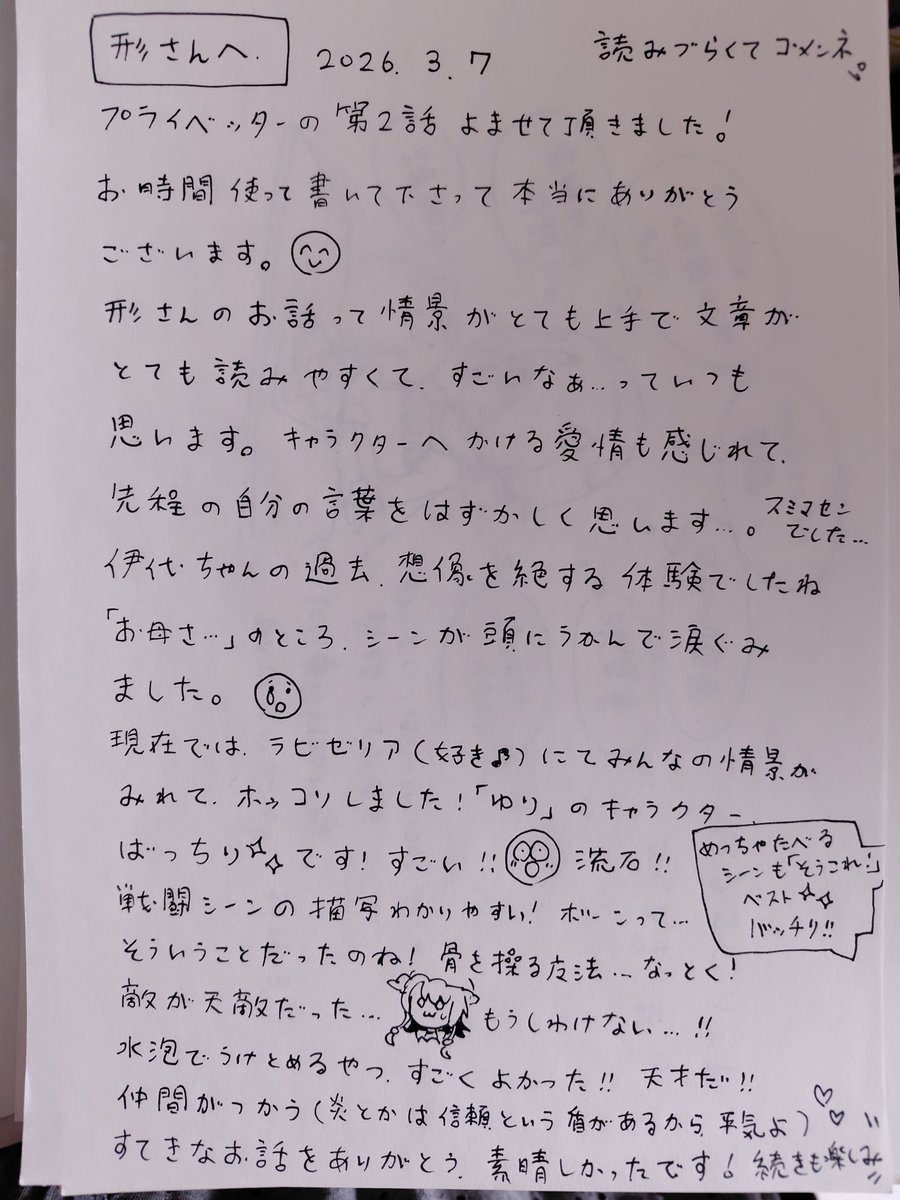 形さんへ.
2026. 3. 7
読みづらくてゴメンネ
プライベッターの第2話 よませて頂きました!
お時間使って書いて下さって本当にありがとう
ございます。
形さんのお話って情景がとても上手で文章が
とても読みやすくて、すごいなぁ…っていつも
思います。キャラクターへかける愛情も感じれて、
先程の自分の言葉をはずかしく思います…。
スミマセン
でした…
伊代ちゃんの過去、想像を絶する体験でしたね
「お母さ…」のところ、シーンが頭にうかんで涙ぐみ
ました。
現在では、ラビゼリア(好き♪)にてみんなの情景が
みれて、ホッコリしました!「ゆり」のキャラクター、
ばっちりです!すごい!!流石!!
めっちゃたべる
シーンも「そうこれ!」
ベスト
バッチリ!!
戦闘シーンの描写わかりやすい!ボーンって…
そういうことだったのね!骨を操る方法…なっとく!
敵が天敵だった…もうしわけない…!!
水泡でうけとめるやつ、すごくよかった!!天才だ!!
仲間がつかう(炎とかは信頼という盾があるから、平気よ)♡♡
すてきなお話をありがとう、素晴しかったです!続きも楽しみ